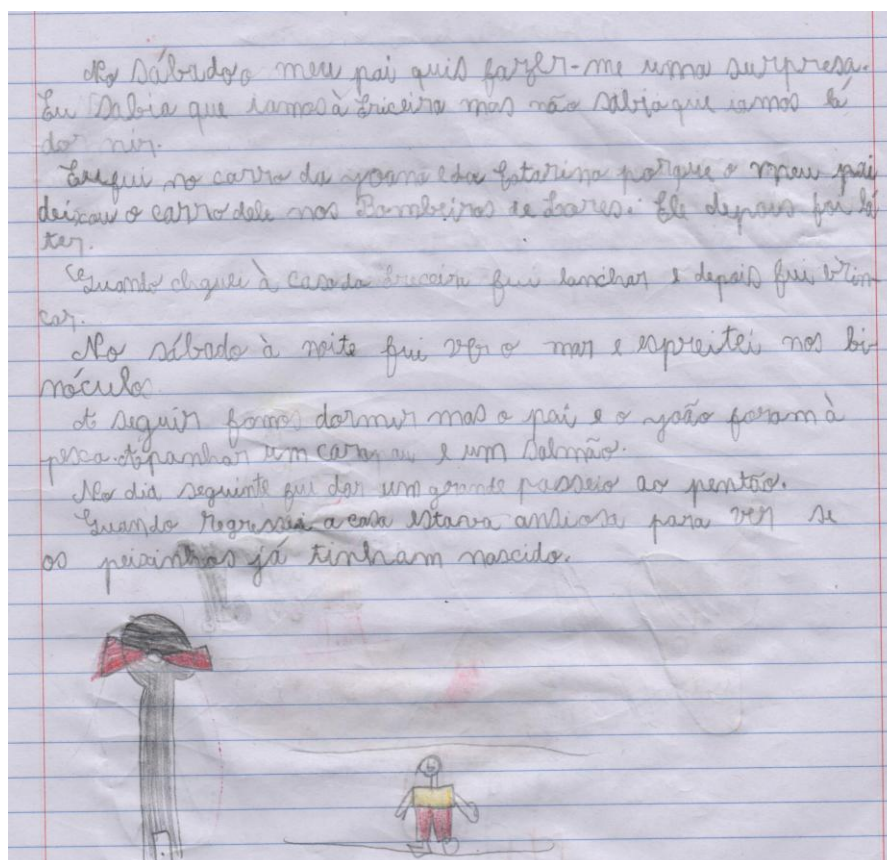 No Sábado o meu pai quis fazer-me uma surpresa.
Eu Sabia que iamos à Ericeira mas não sabia que iamos lá
dormir.
Eu fui no carro da Joana e da Catarina porque o meu pai
deixou o carro dele nos Bombeiros de Loures. Ele depois foi lá
ter.
Quando cheguei à casa da Ericeira fui lanchar e depois fui brin-
car.
No sábado à noite fui ver o mar e espreitei nos bi-
nóculos
A seguir fomos dormir mas o pai e o João foram à
pesca. Apanhar um carapau e um Salmão.
No dia seguinte fui dar um grande passeio ao pontão.
Quando regressei a casa estava ansiosa para ver se
os peixinhos já tinham nascido.